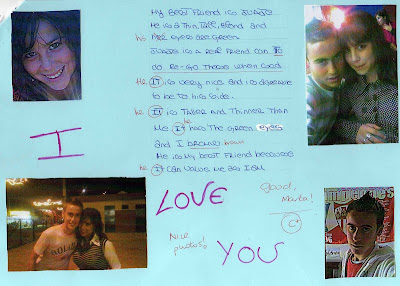 My BEST FRIEND is JUANJO
He is a THIN, TALL, Blond and
his HER eyes are GREEN
JUANJO is a REAL FRIEND CAN TO
do THINGS WHEN Good
He IT is VERY Nice AND is
be TO his side.
he IT is TALLER AND THINNER THAN
ME. IT he has THE green eyes
and I brown
He is My best FRIEND because
he I CAN VALUE ME AS I AM
I
LOVE
YOU
Good,
Marta!
C+
Nice
photos!